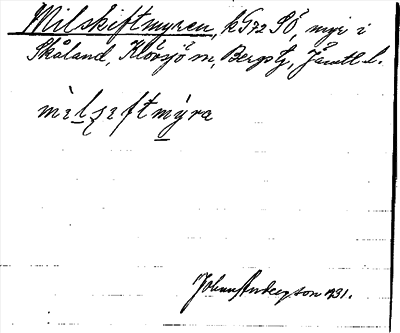 Milskiftmyren, kG72 SÖ, myr i
Skåland, Klövsjö sn, Bergs tg, Jämtl. l.
mìlʂiftmýra
Johan Anderson 1931.